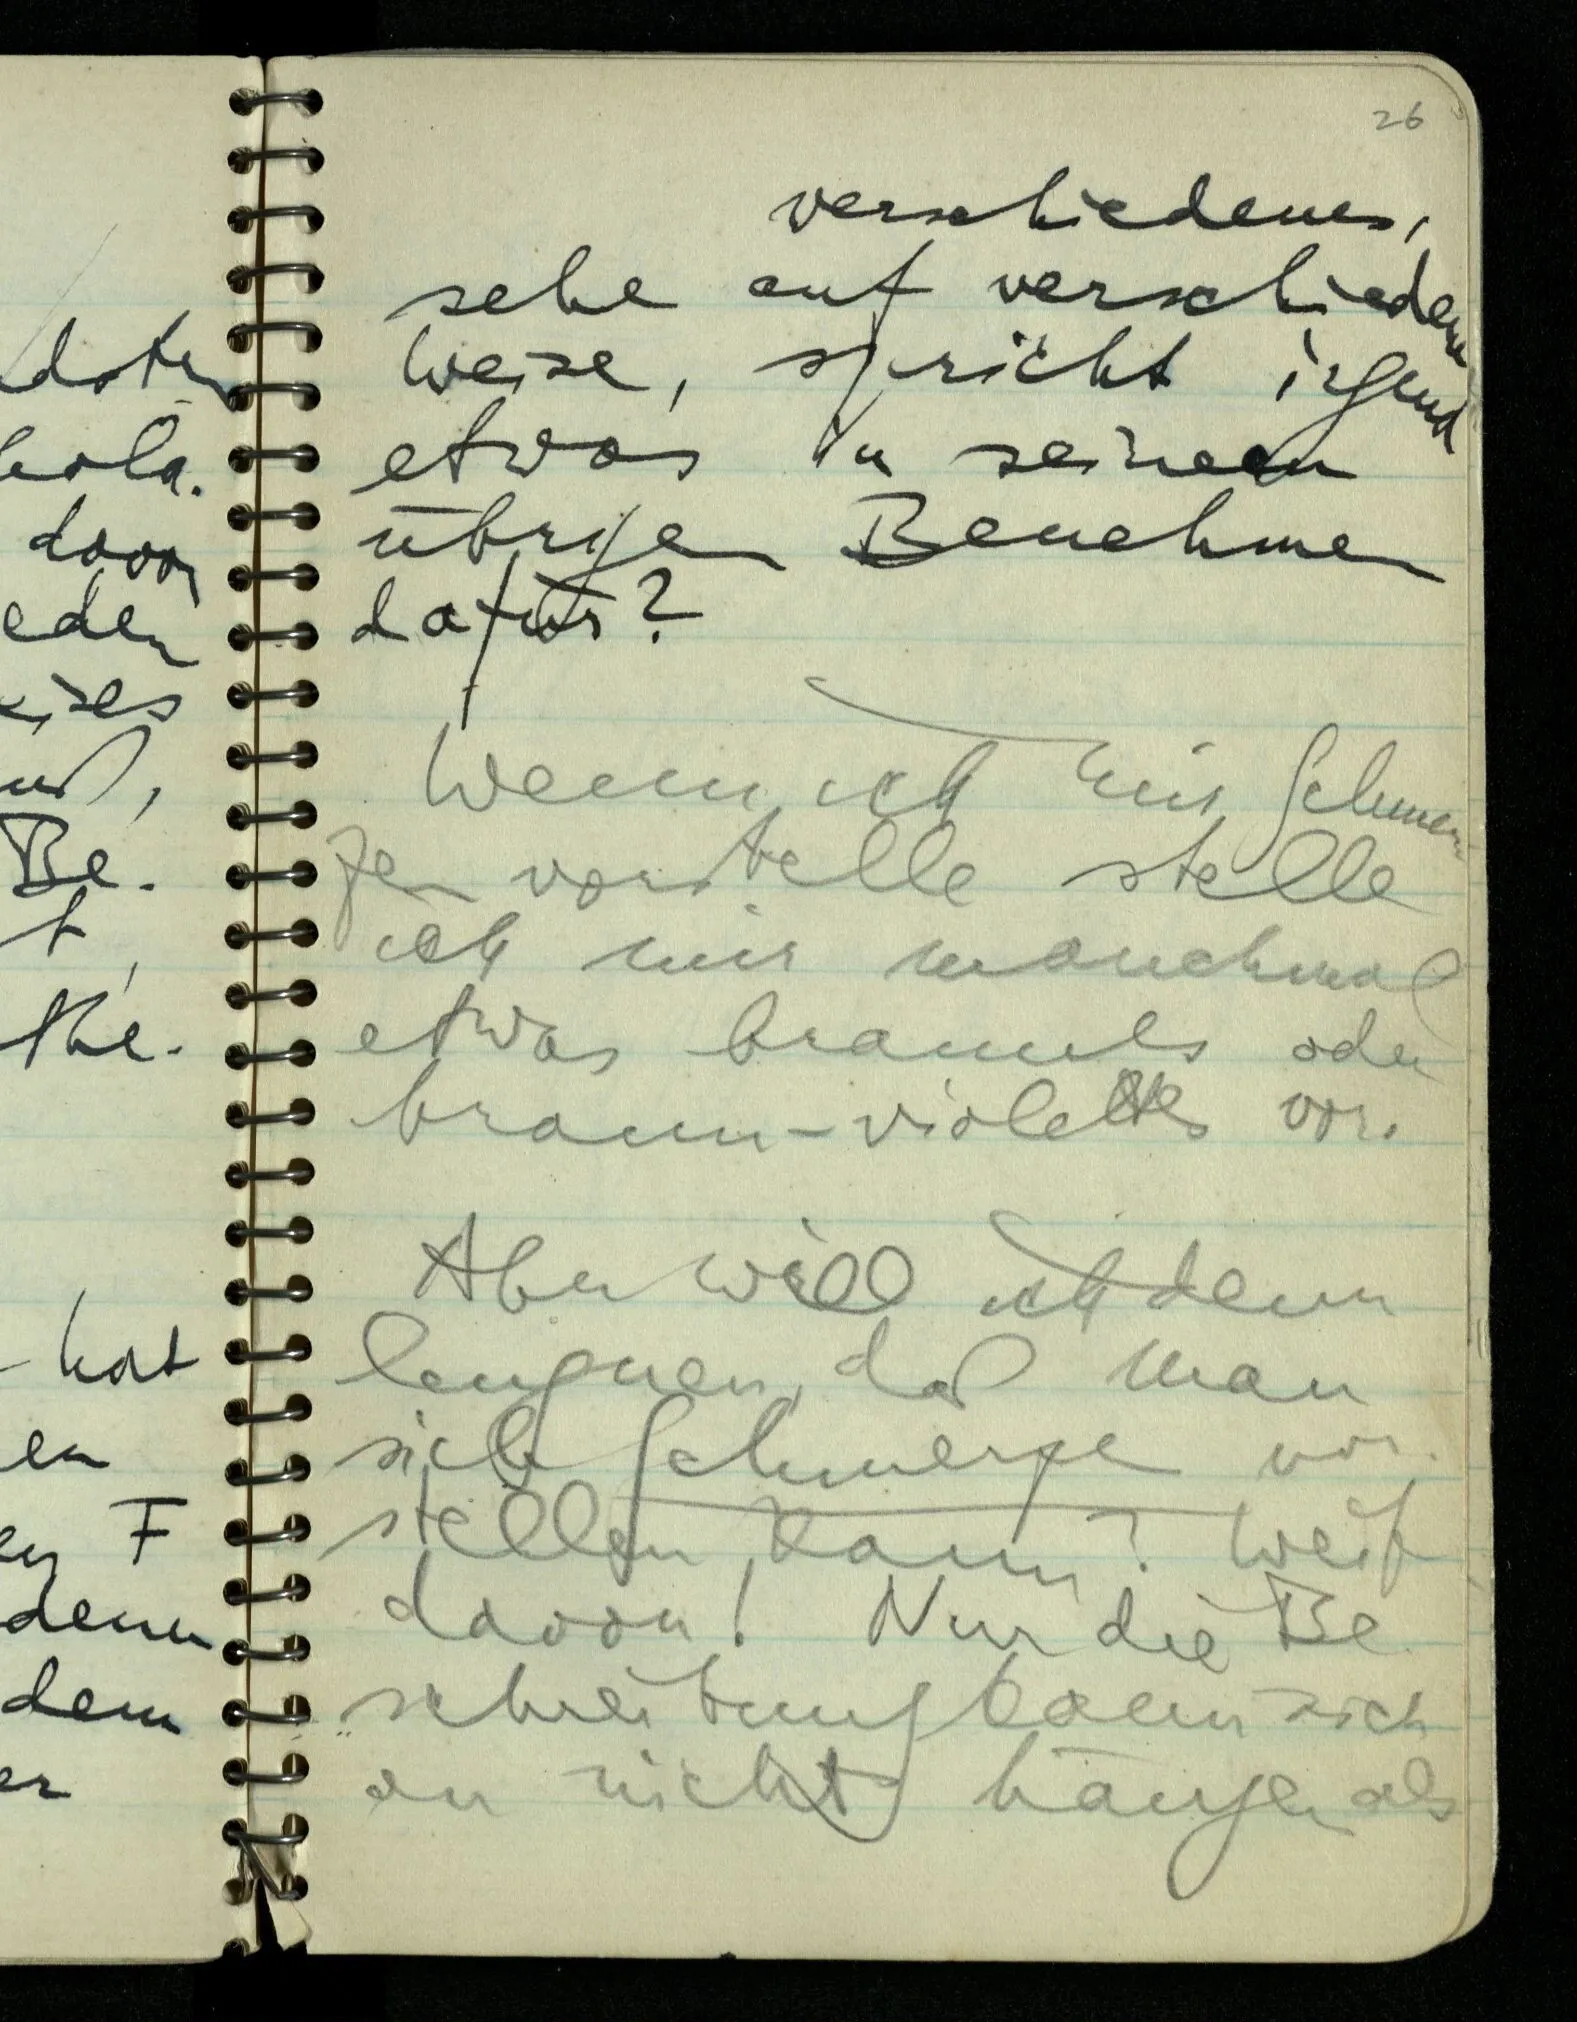 26
dots
verschiedenes,
sehe auf verschiedene
Weise, spricht irgend
etwas in seinem
übrigen Benehmen
dafür?
davon
eden
ises
Be-
t,
the-
Wenn ich mir Schmer
zen vorstelle stelle
ich mir manchmal
etwas braunes oder
braun-violettes vor.
hat
en
F
denn
dem
er
Aber will ich denn
leugnen, daß man
sich Schmerze vor-
stellen kann? Weit
davon! Nur die Be
schreibung kann sich
an nichts hängen als